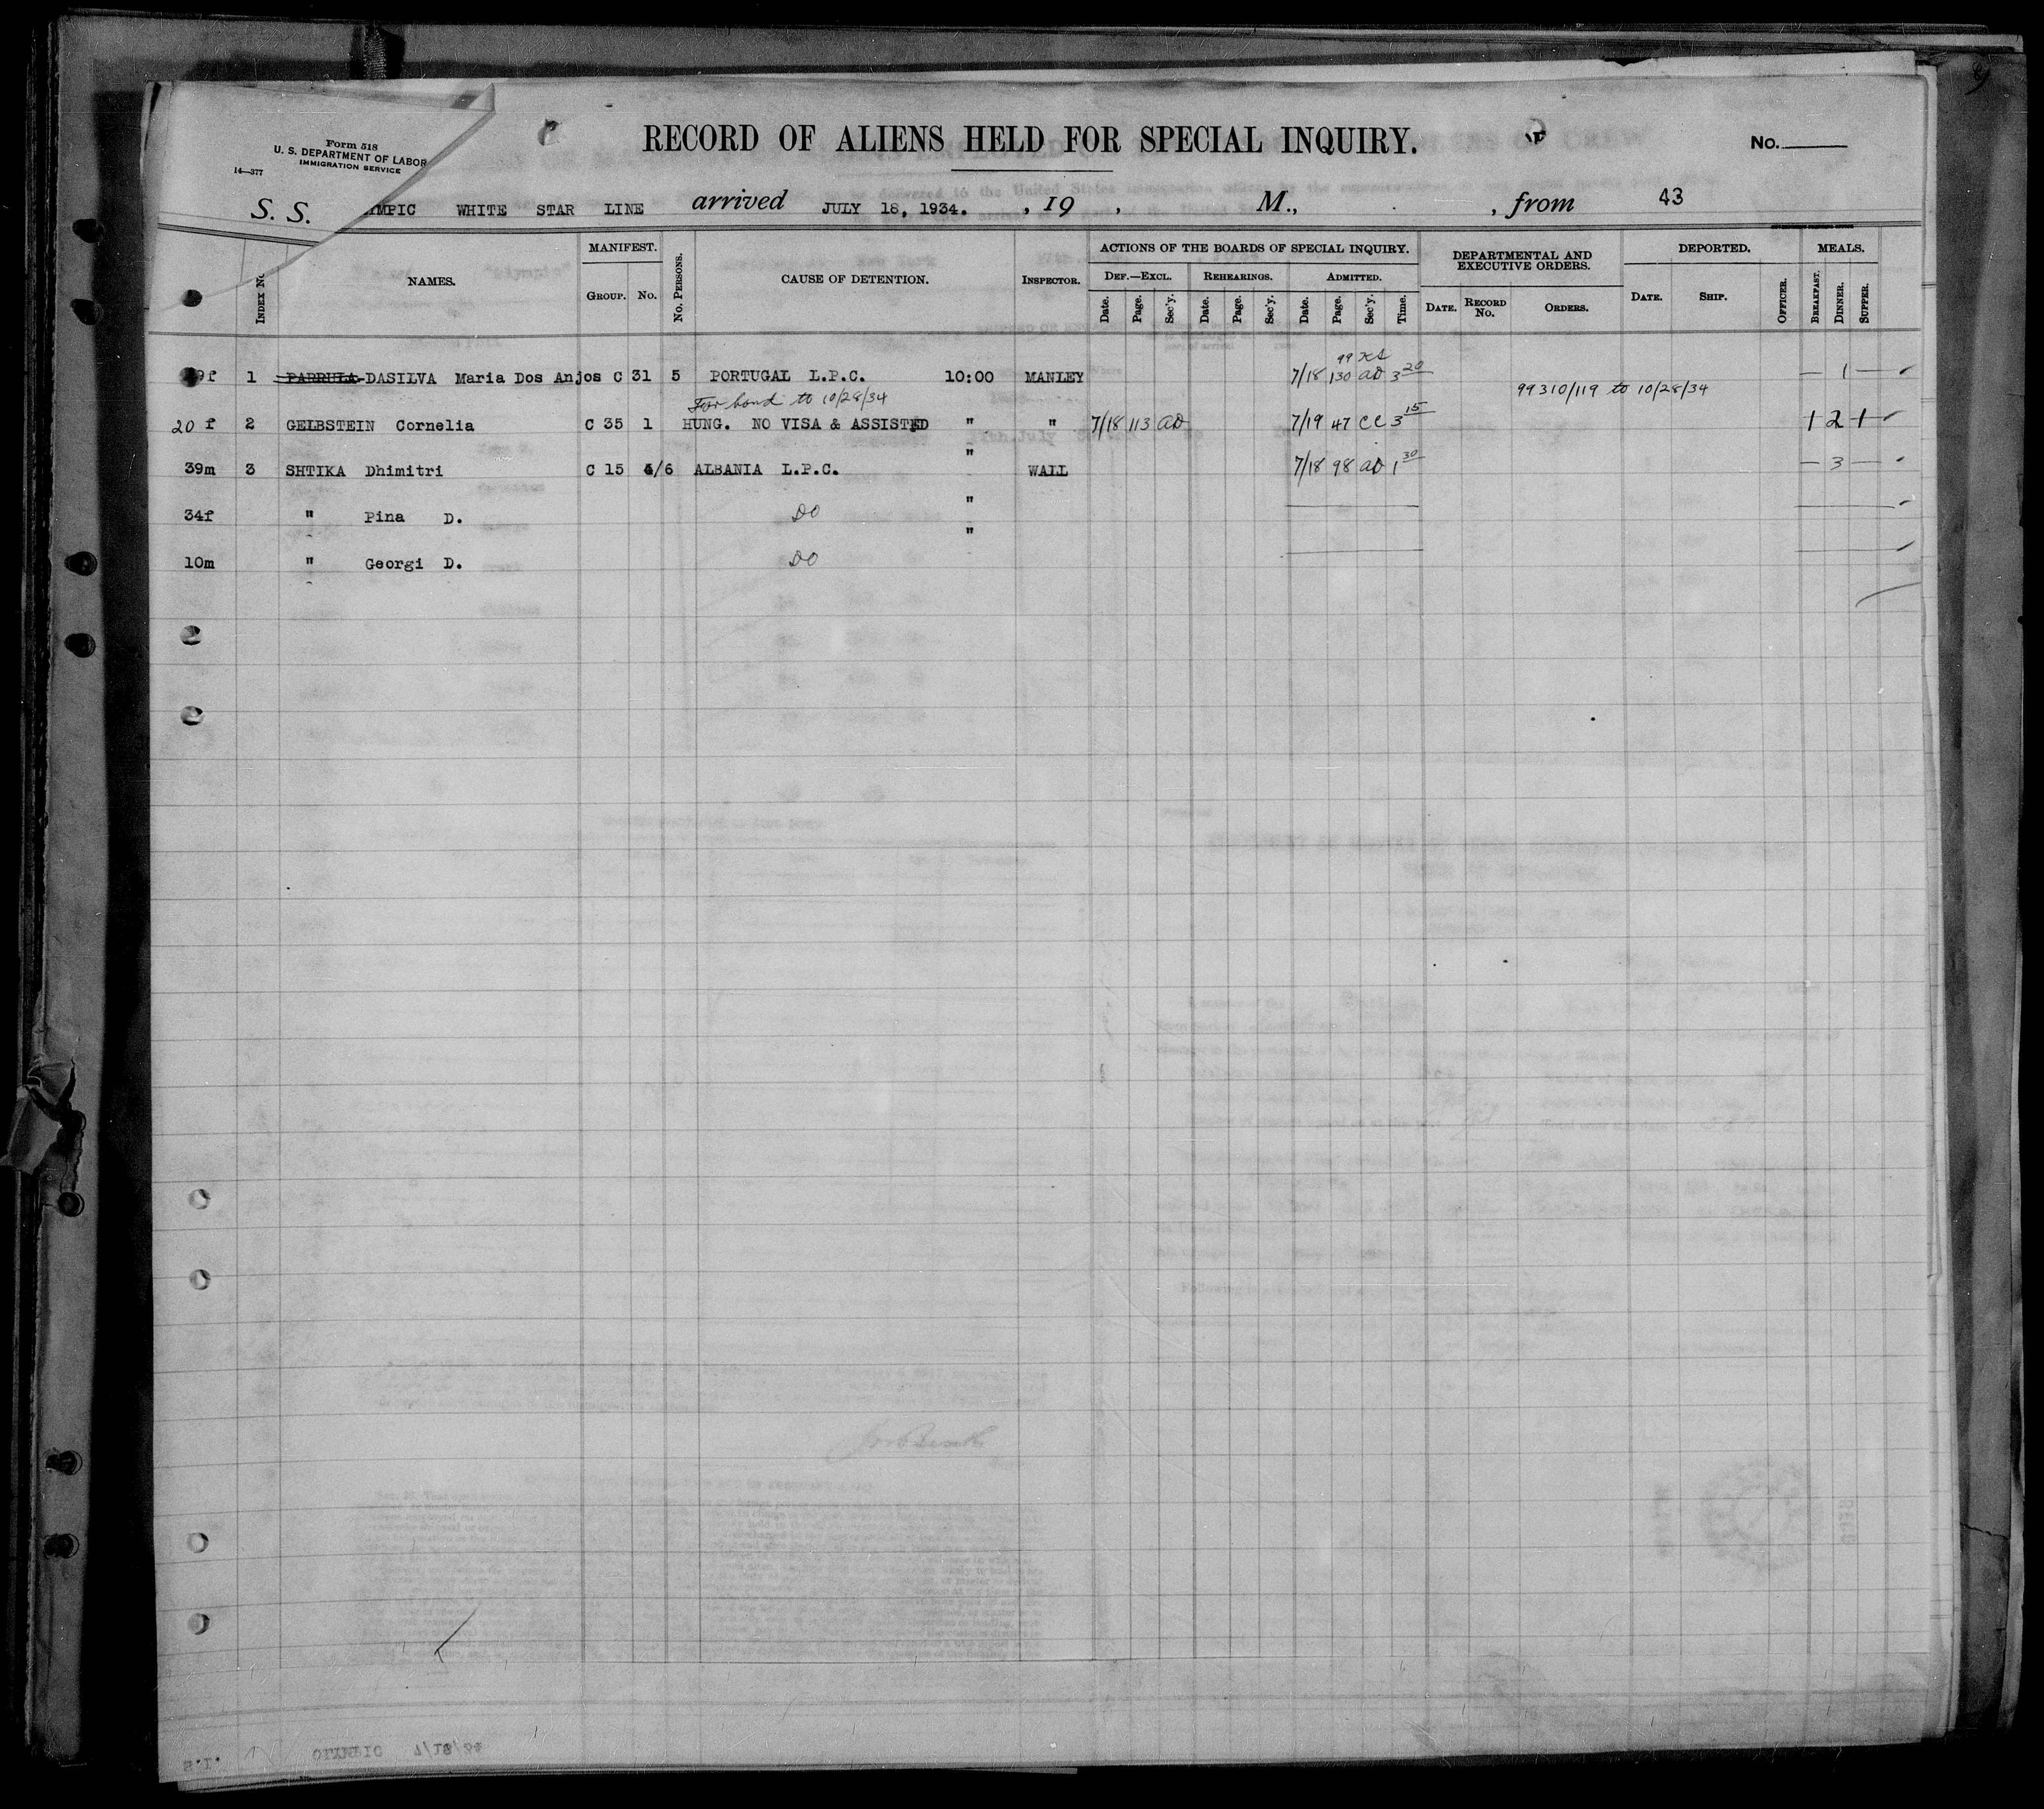 Form 518
U. S. DEPARTMENT OF LABOR
IMMIGRATION SERVICE
14—377
RECORD OF ALIENS HELD FOR SPECIAL INQUIRY.
No.
S. S. YMPIC WHITE STAR LINE arrived JULY 18, 1934. , 19 , M., , from 43
INDEX No.
NAMES.
MANIFEST.
GROUP. No.
No. PERSONS.
CAUSE OF DETENTION.
INSPECTOR.
ACTIONS OF THE BOARDS OF SPECIAL INQUIRY.
DEF.—EXCL. REHEARINGS. ADMITTED.
Date. Page. Sec'y. Date. Page. Sec'y. Date. Page. Sec'y. Time.
DEPARTMENTAL AND EXECUTIVE ORDERS.
DATE. RECORD No. ORDERS.
DEPORTED.
DATE. SHIP. OFFICER.
MEALS.
BREAKFAST. DINNER. SUPPER.
9f 1 PADRULA DASILVA Maria Dos Anjos C 31 5 PORTUGAL L.P.C. 10:00 MANLEY 7/18 99 130 AD 3 20 — 1 —
For bond to 10/28/34 99310/119 to 10/28/34
20 f 2 GELBSTEIN Cornelia C 35 1 HUNG. NO VISA & ASSISTED " " 7/18 113 AD 7/19 47 CC 3 15 1 2 1
39m 3 SHTIKA Dhimitri C 15 4/6 ALBANIA L.P.C. " WALL 7/18 98 AD 1 30 — 3 —
34f " Pina D. DO "
10m " Georgi D. DO "
S.I. OLYMPIC 7/18/34